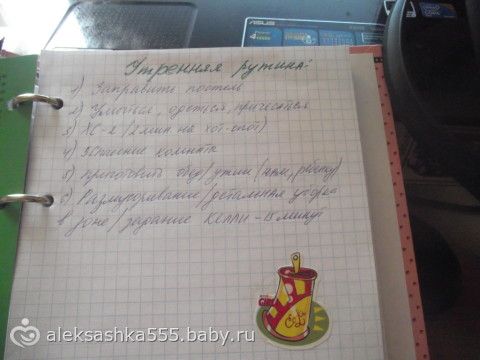 Утренняя рутина:
1) Заправить постель
2) Умыться, одеться, причесаться
3) ХС-2 (2 мин на хот-спот)
4) комната
5) Приготовить обед/ужин (нам, ребёнку)
6) Размусоривание/детальная уборка
в зоне/задание Келли - 15 минут
ASUS
aleksashka555.baby.ru